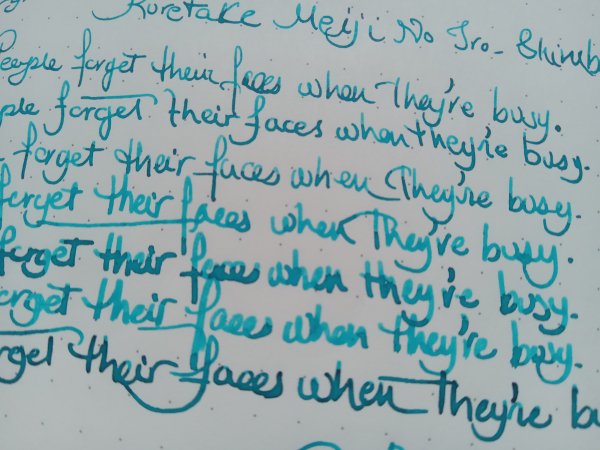 Kuretake Meiji No Iro - Shinub
People forget their faces when They're busy.
ple forget their faces when they're busy.
forget their faces when They're busy.
forget their faces when They're busy.
forget their faces when they're busy.
orget their faces when they're busy.
rget their faces when They're bu